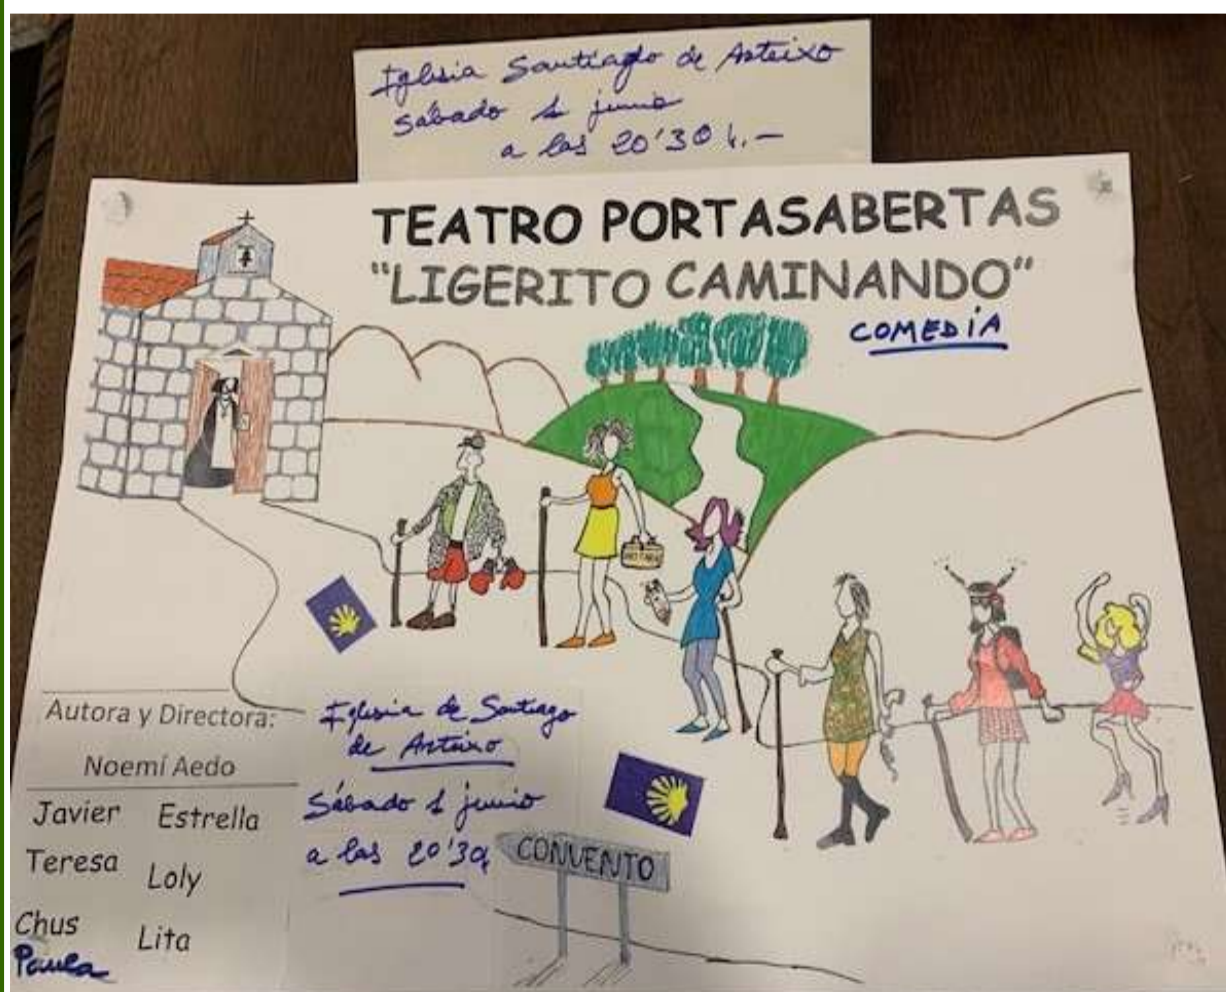 Iglesia Santiago de Arteixo
Sábado 1 junio
a las 20'30 h.-
TEATRO PORTASABERTAS
"LIGERITO CAMINANDO"
COMEDIA
Autora y Directora:
Noemí Aedo
Javier Estrella
Teresa Loly
Chus Lita
Paula
Iglesia de Santiago
de Arteixo
Sábado 1 junio
a las 20'30
CONVENTO